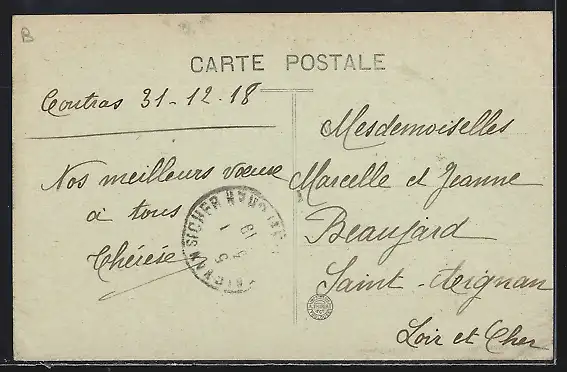 B
CARTE POSTALE
Coutras 31-12.18
Nos meilleurs vœux
à tous
Thérèse
Mesdemoiselles
Marcelle et Jeanne
Beaujard
Saint-Aignan
Loir et Cher